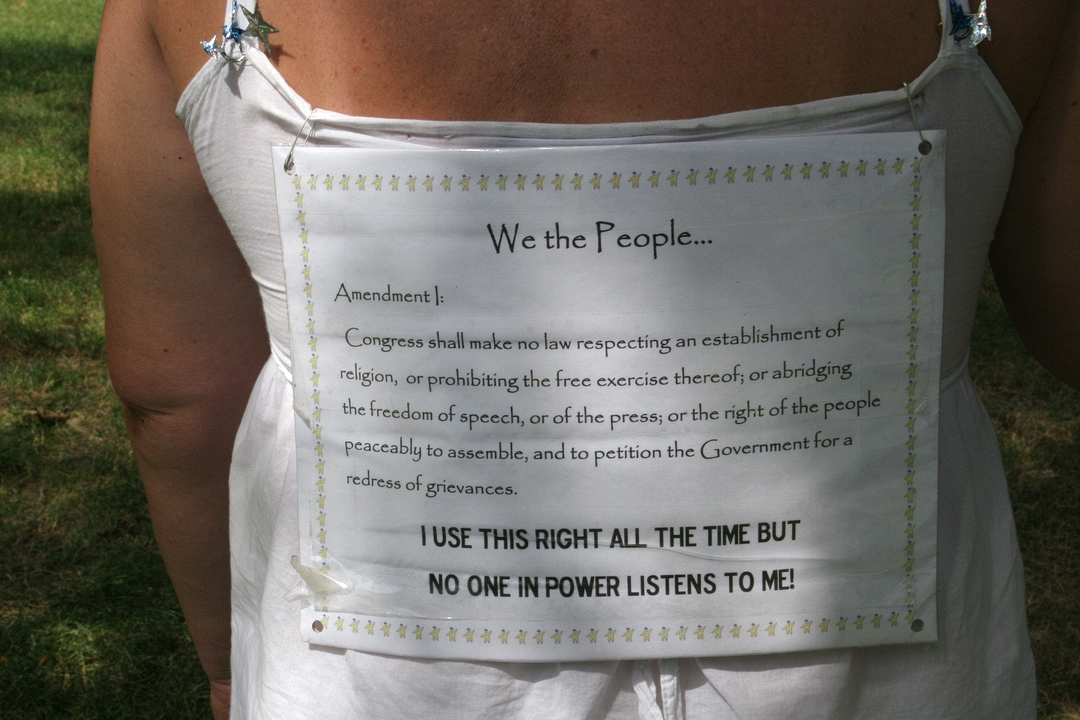 We the People...
Amendment I:
Congress shall make no law respecting an establishment of
religion, or prohibiting the free exercise thereof; or abridging
the freedom of speech, or of the press; or the right of the people
peaceably to assemble, and to petition the Government for a
redress of grievances.
I USE THIS RIGHT ALL THE TIME BUT
NO ONE IN POWER LISTENS TO ME!